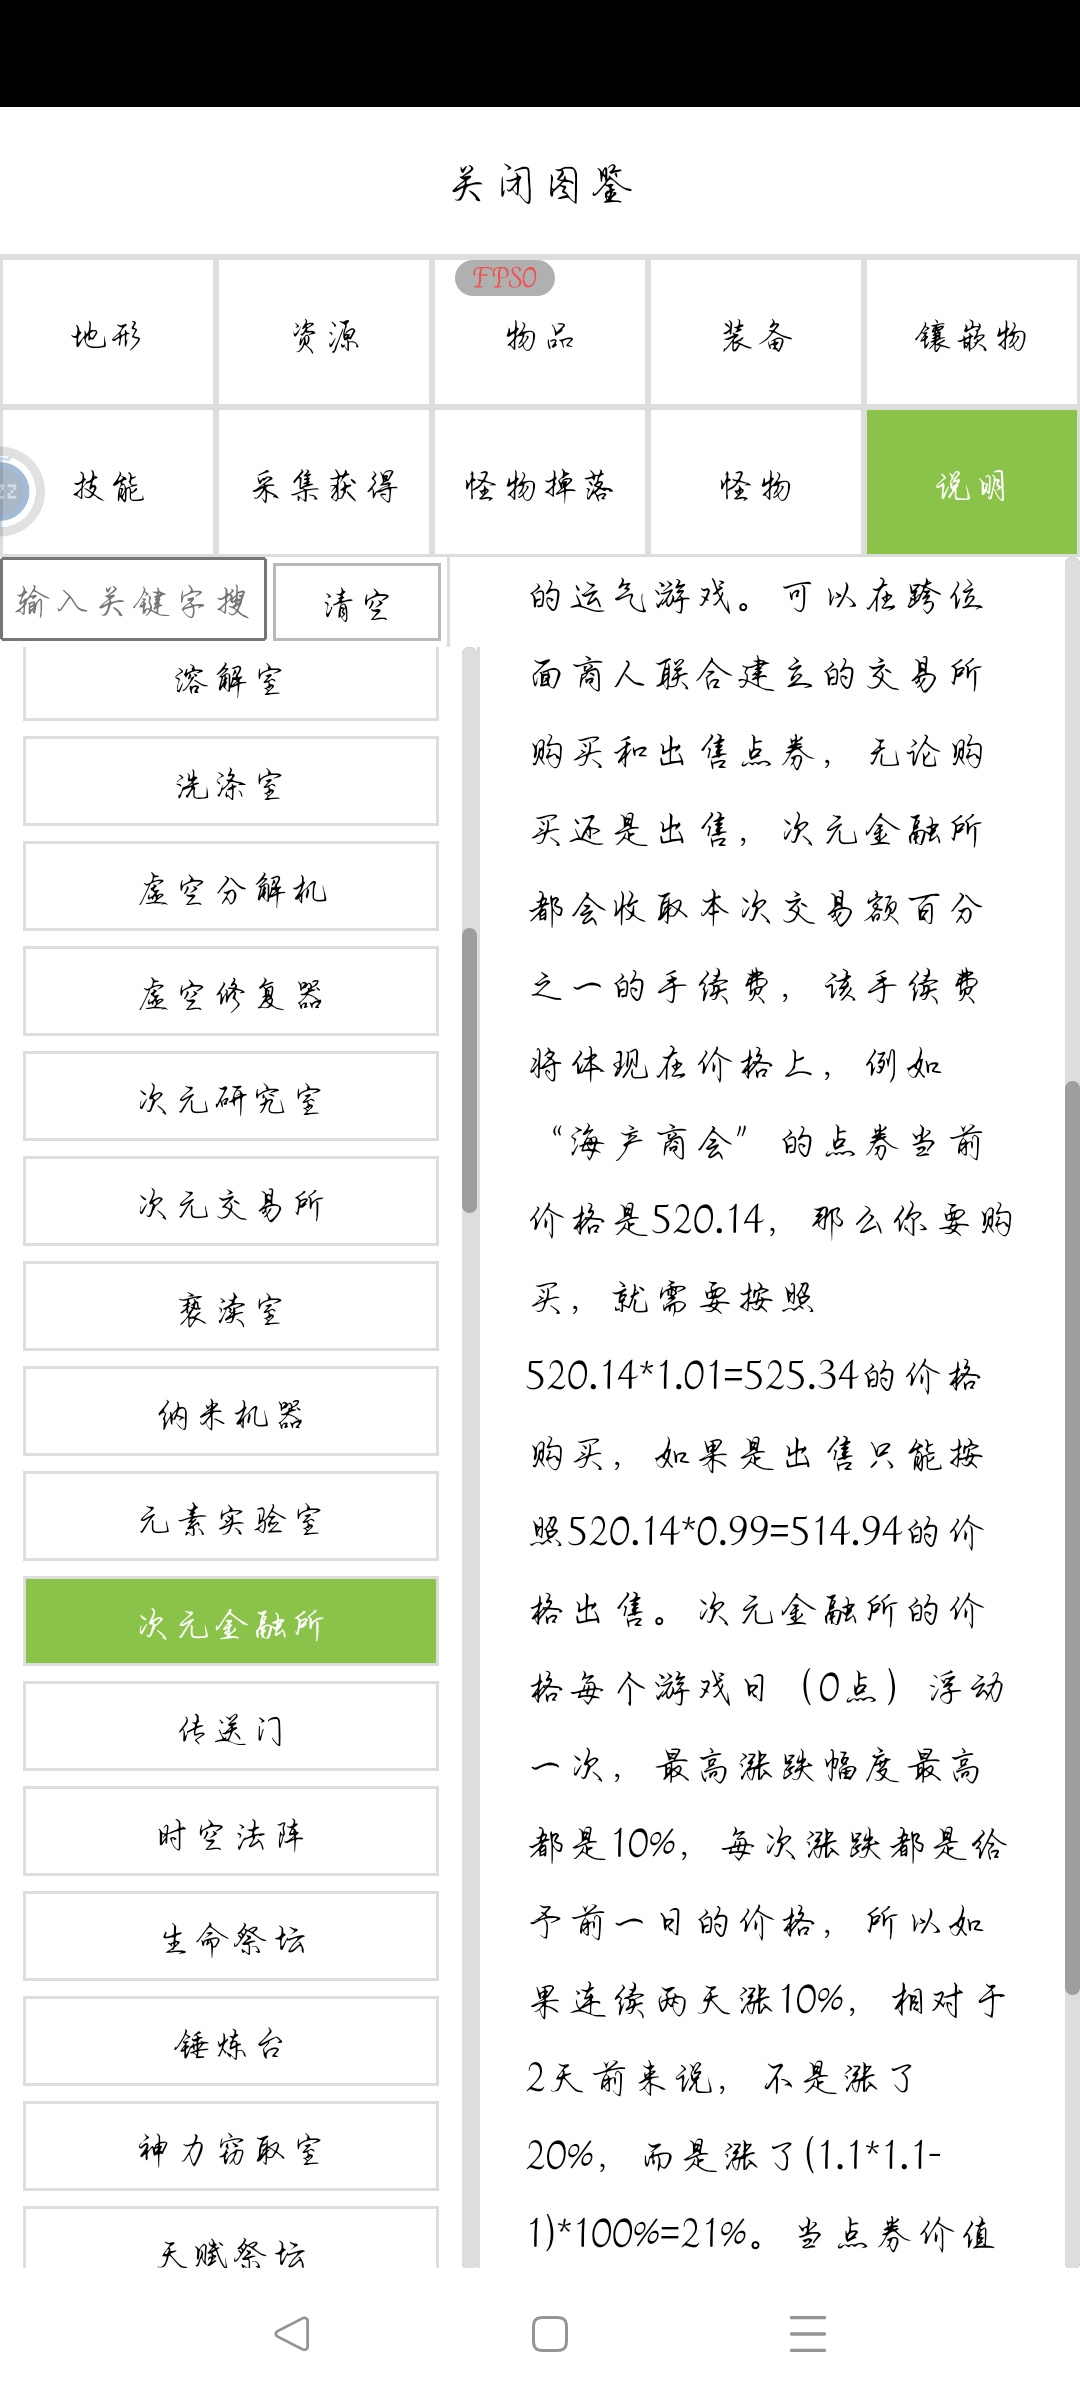 关闭图鉴
FPS0
地形 资源 物品 装备 镶嵌物
技能 采集获得 怪物掉落 怪物 说明
22
输入关键字搜 清空
溶解室
洗涤室
虚空分解机
虚空修复器
次元研究室
次元交易所
亵渎室
纳米机器
元素实验室
次元金融所
传送门
时空法阵
生命祭坛
锤炼台
神力窃取室
天赋祭坛
的运气游戏。可以在跨位
面商人联合建立的交易所
购买和出售点券，无论购
买还是出售，次元金融所
都会收取本次交易额百分
之一的手续费，该手续费
将体现在价格上，例如
“海产商会”的点券当前
价格是520.14，那么你要购
买，就需要按照
520.14*1.01=525.34的价格
购买，如果是出售只能按
照520.14*0.99=514.94的价
格出售。次元金融所的价
格每个游戏日（0点）浮动
一次，最高涨跌幅度最高
都是10%，每次涨跌都是给
予前一日的价格，所以如
果连续两天涨10%，相对于
2天前来说，不是涨了
20%，而是涨了(1.1*1.1-
1)*100%=21%。当点券价值